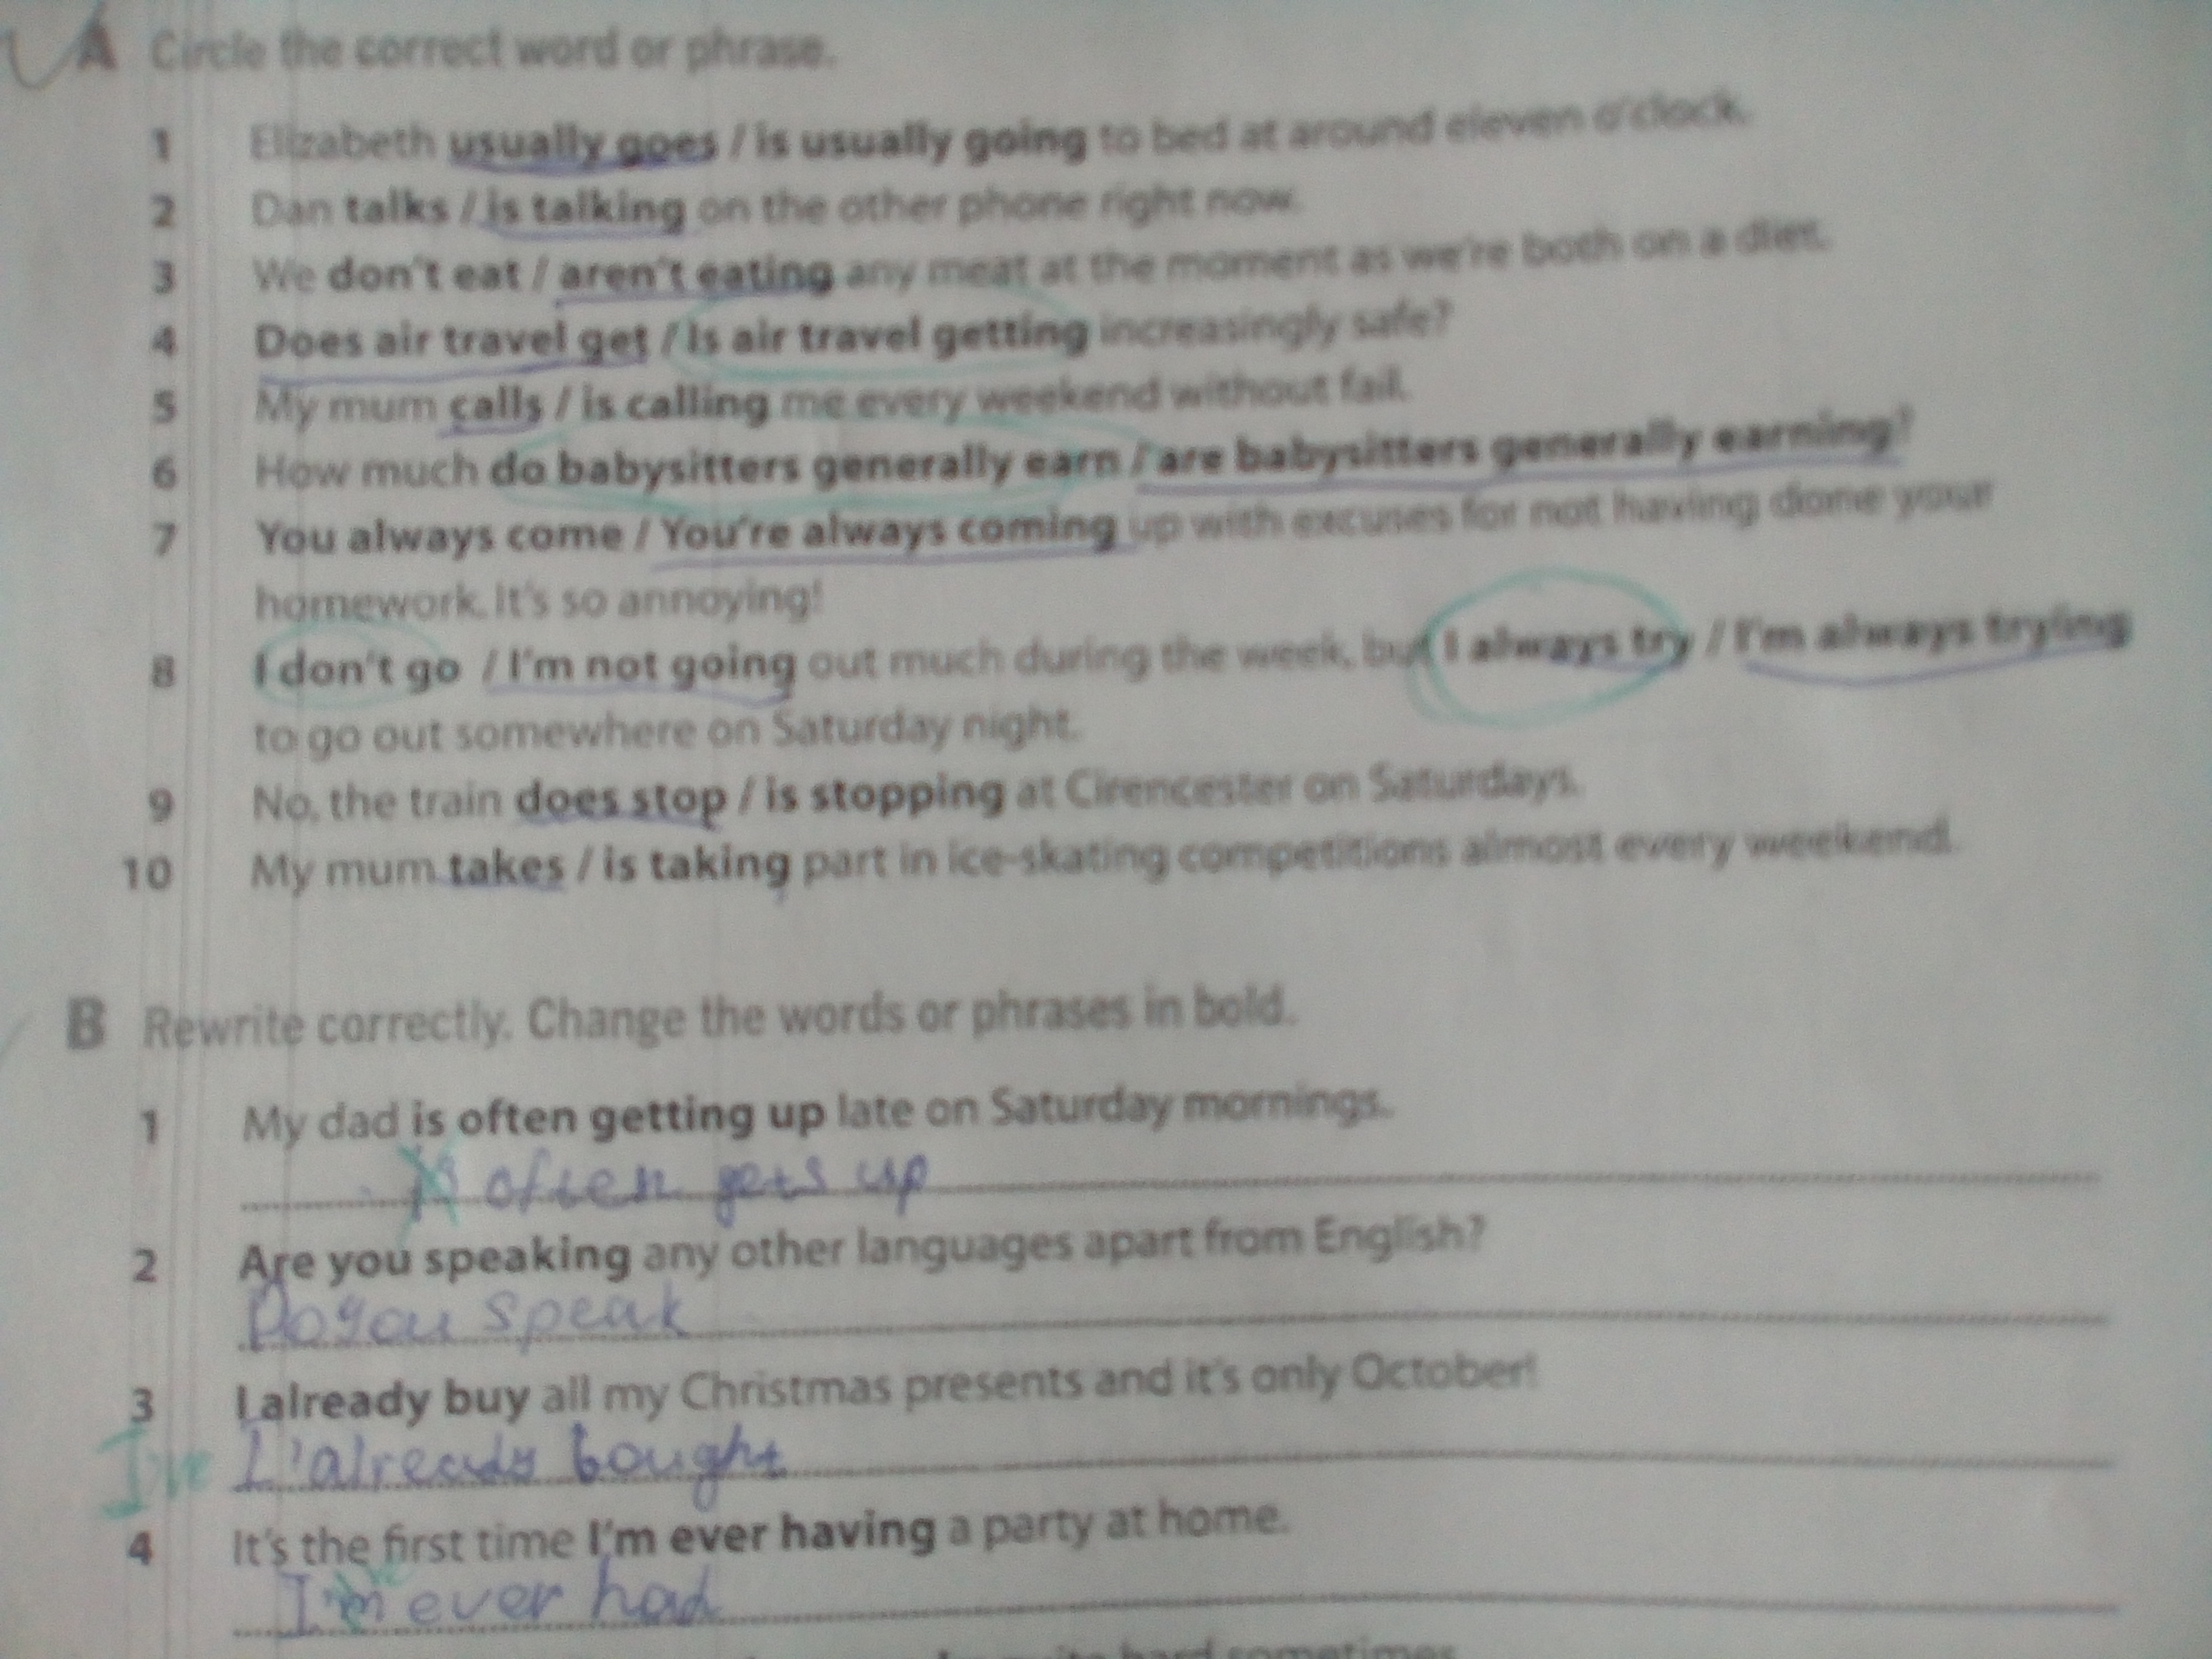 A Circle the correct word or phrase.
1 Elizabeth usually goes / is usually going to bed at around eleven o'clock.
2 Dan talks / is talking on the other phone right now.
3 We don't eat / aren't eating any meat at the moment as we're both on a diet.
4 Does air travel get / Is air travel getting increasingly safe?
5 My mum calls / is calling me every weekend without fail.
6 How much do babysitters generally earn / are babysitters generally earning?
7 You always come / You're always coming up with excuses for not having done your
homework. It's so annoying!
8 I don't go / I'm not going out much during the week, but I always try / I'm always trying
to go out somewhere on Saturday night.
9 No, the train does stop / is stopping at Cirencester on Saturdays.
10 My mum takes / is taking part in ice-skating competitions almost every weekend.
B Rewrite correctly. Change the words or phrases in bold.
1 My dad is often getting up late on Saturday mornings.
is often gets up
2 Are you speaking any other languages apart from English?
Do you speak
3 I already buy all my Christmas presents and it's only October!
I've I'already bought
4 It's the first time I'm ever having a party at home.
I'm ever had
hard sometimes